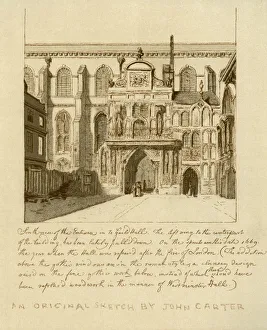 South view of the Entrance in to Guild Hall. The left wing to the westapart
of the building has been lately pulled down. On the spout is this date 1669
the year when the Hall was repaired after the fire of London. (The addition
above the gothic windows are in the roman style, a clumsy design,
and in the fine gothic work below, instead of which should have
been replaced woodwork in the manner of Westminster Hall.)
AN ORIGINAL SKETCH BY JOHN CARTER